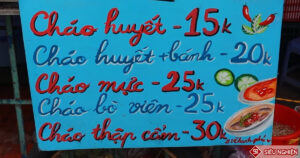 Cháo huyết - 15k
Cháo huyết + bánh - 20k
Cháo mực - 25k
Cháo bò viên - 25k
Cháo thập cẩm - 30k
SIÊU NGHIỆN